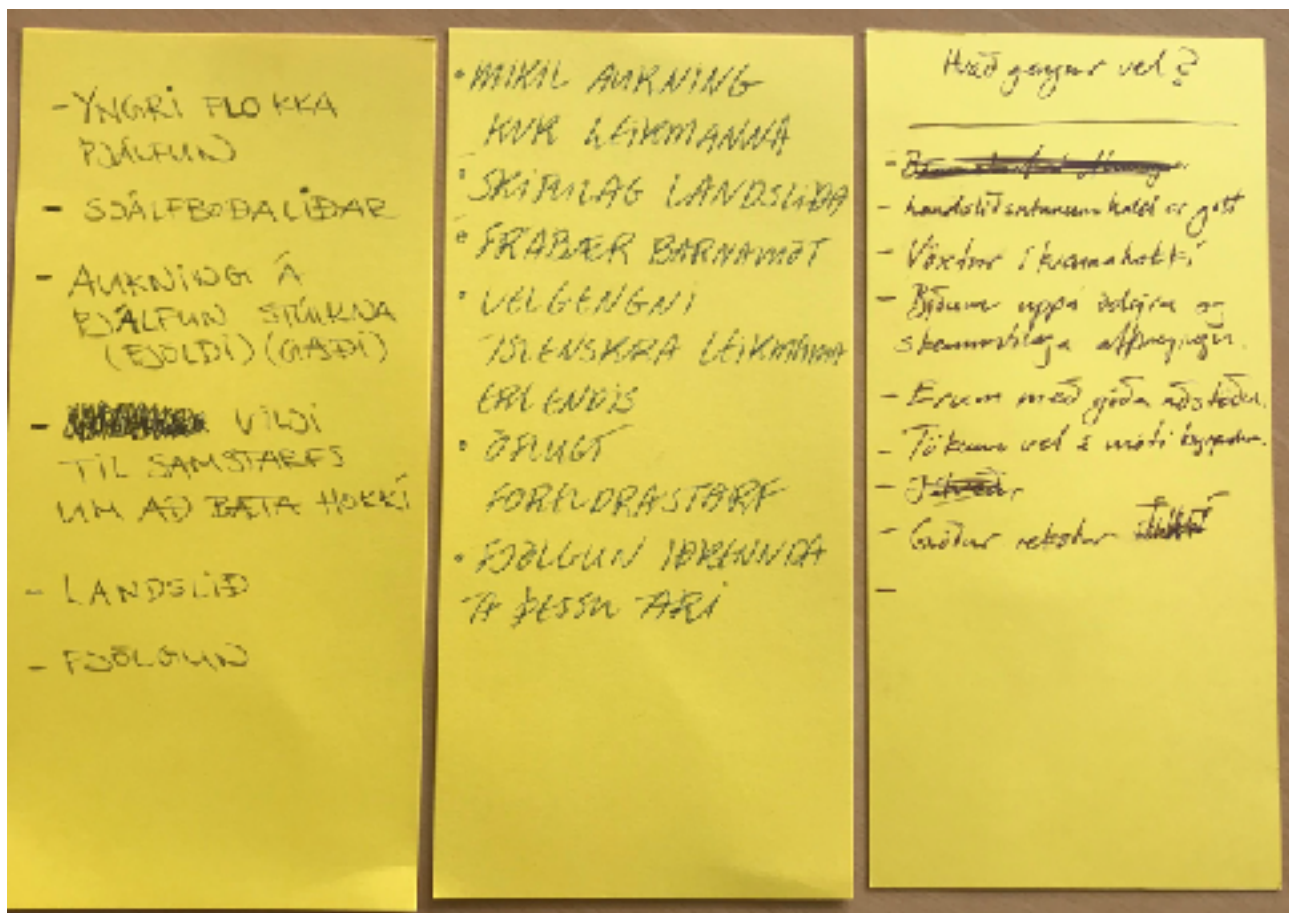 - YNGRI FLOKKA
ÞJÁLFUN
- SJÁLFBOÐALIÐAR
- AUKNING Á
ÞJÁLFUN STÚLKNA
(FJÖLDI) (GÆÐI)
- VILJI
TIL SAMSTARFS
UM AÐ BÆTA HOKKÍ
- LANDSLIÐ
- FJÖLGUN
• MIKIL AUKNING
KVK LEIKMANNA
• SKIPULAG LANDSLIÐA
• FRÁBÆR BARNAMÓT
• VELGENGNI
ÍSLENSKRA LEIKMANNA
ERLENDIS
• ÖFLUGT
FORELDRASTARF
• FJÖLGUN IÐKENNDA
Á ÞESSU ÁRI
Hvað gengur vel?
- landsliðsutanumhald er gott
- Vöxtur í kvennahokkí
- Bjóðum uppá ódýra og
skemmtilega
- Erum með góða aðstöðu.
- Tökum vel á móti
- Góður rekstur
-